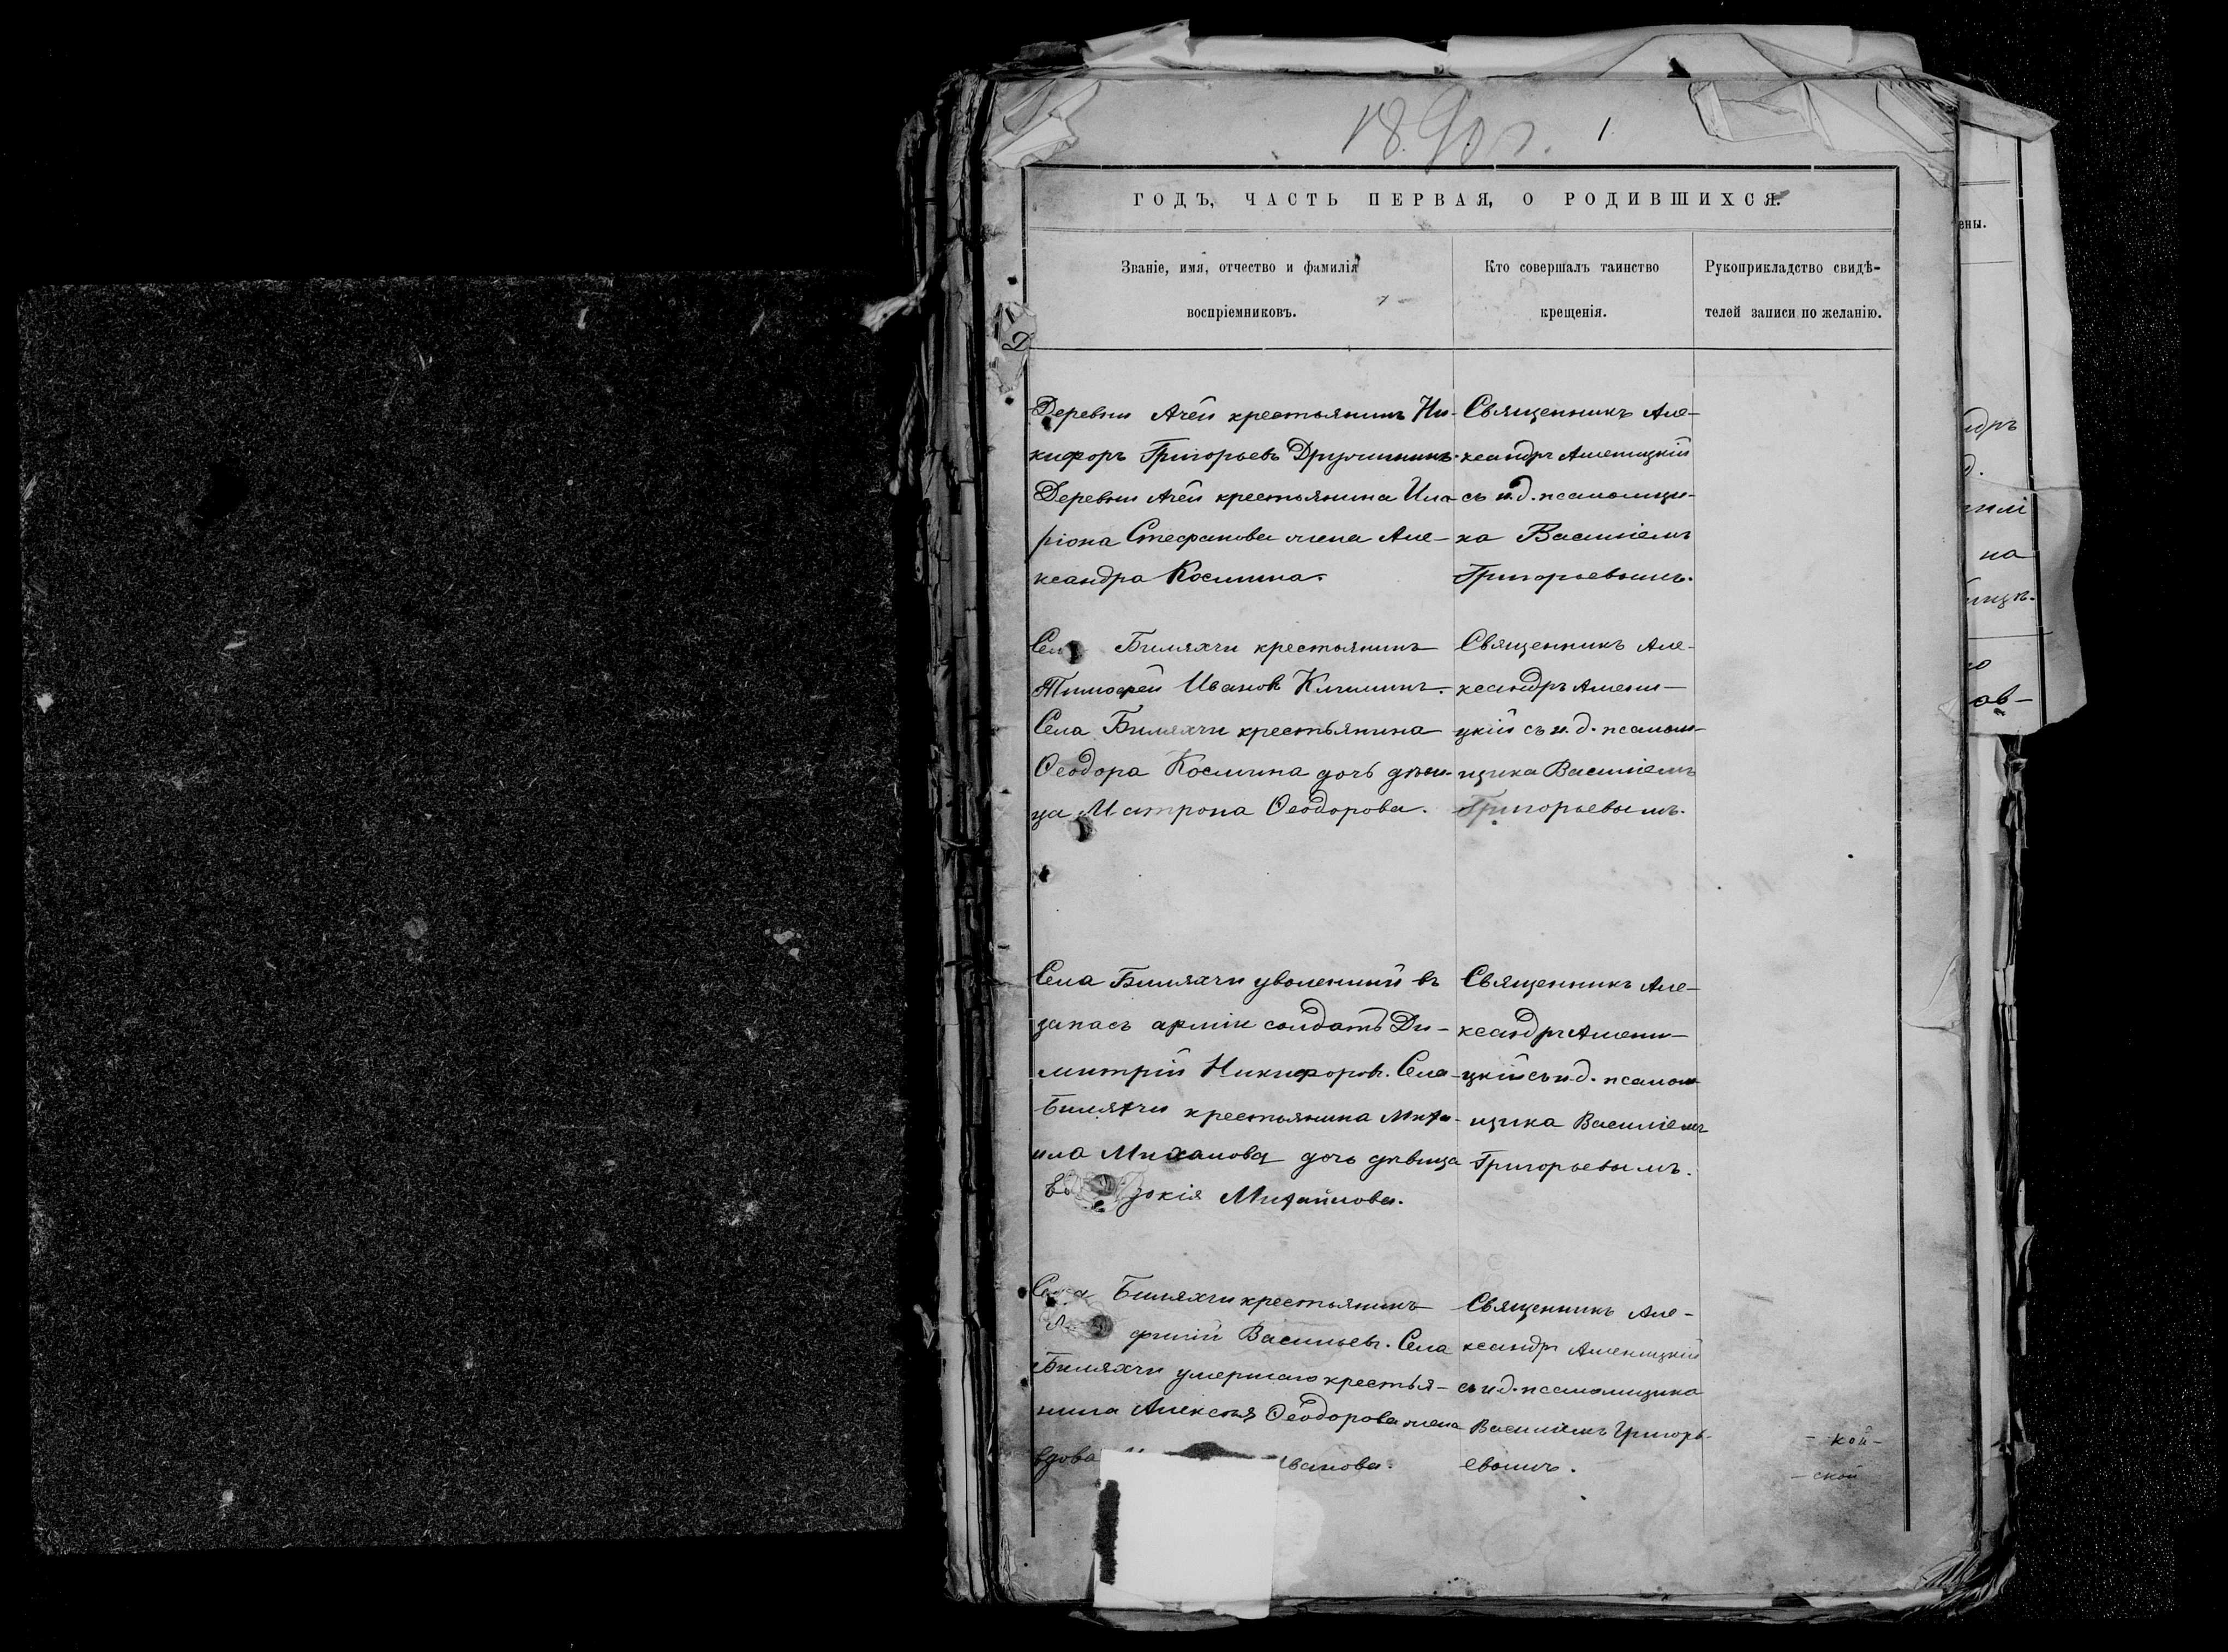 1890 г. 1.
ГОДЪ, ЧАСТЬ ПЕРВАЯ, О РОДИВШИХСЯ.
Званіе, имя, отчество и фамилія
воспріемниковъ.
Кто совершалъ таинство
крещенія.
Рукоприкладство свидѣ-
телей записи по желанію.
Деревни Ачей крестьянинъ Ни-
кифоръ Григорьевъ
Деревни Ачей крестьянина Ила-
ріона Стефанова жена Але-
ксандра Космина.
Священникъ Але-
ксандръ Аменицкій
съ и.д. псаломщи-
ка Василіемъ
Григорьевымъ.
Биляхчи крестьянинъ
Тимофей Ивановъ
Села Биляхчи крестьянина
Ѳеодора Космина дочь дѣви-
ца Матрона Ѳеодорова.
Священникъ Але-
ксандръ Амени-
цкій съ и.д. псалом-
щика Василіемъ
Григорьевымъ.
Села Биляхчи уволенный въ
запасъ арміи солдатъ Ди-
митрій Никифоровъ. Села
Биляхчи крестьянина Миха-
ила дочь дѣвица
Михайлова.
Священникъ Але-
ксандръ Амени-
цкій съ и.д. псалом-
щика Василіемъ
Григорьевымъ.
Села Биляхчи крестьянинъ
Васильевъ. Села
Биляхчи умершаго крестья-
нина Алексѣя Ѳеодорова жена
вдова
Священникъ Але-
ксандръ Аменицкій
съ и.д. псаломщика
Василіемъ Григорь-
евымъ.
- кой -
- ской
ены.
на
ав-